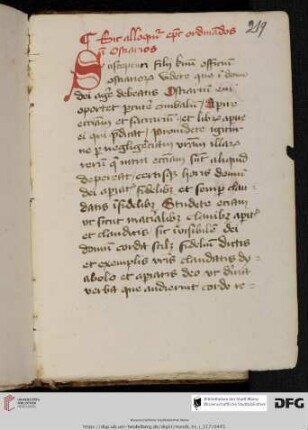 219
Sic alloquitur eps ordinandos
in Ostiarios
Suscepturi filij kmi officium
ostiariorum videte que i domo
dei agere debeatis Ostiarium em
oportet percutere cimbalum / Apire
ecciam et sacrarium / et librum apire
ei qui predicat / Providete igitur
ne per negligenciam vram illarum
rerum que intra ecciam sunt aliquid
depereat / certisque horis domum
dei apiatis fidelibus et semper clau
datis infidelibus Studete eciam
ut sicut materialibus clavibus apitis
et clauditis sic invisibilem dei
domum corda scilicet fidelium dictis
et exemplis vris claudatis dy
abolo et apiatis deo ut divina
verba que audierint corde re
UNIVERSITÄTS-
BIBLIOTHEK
HEIDELBERG
Bibliotheken der Stadt Mainz
Wissenschaftliche Stadtbibliothek
DFG